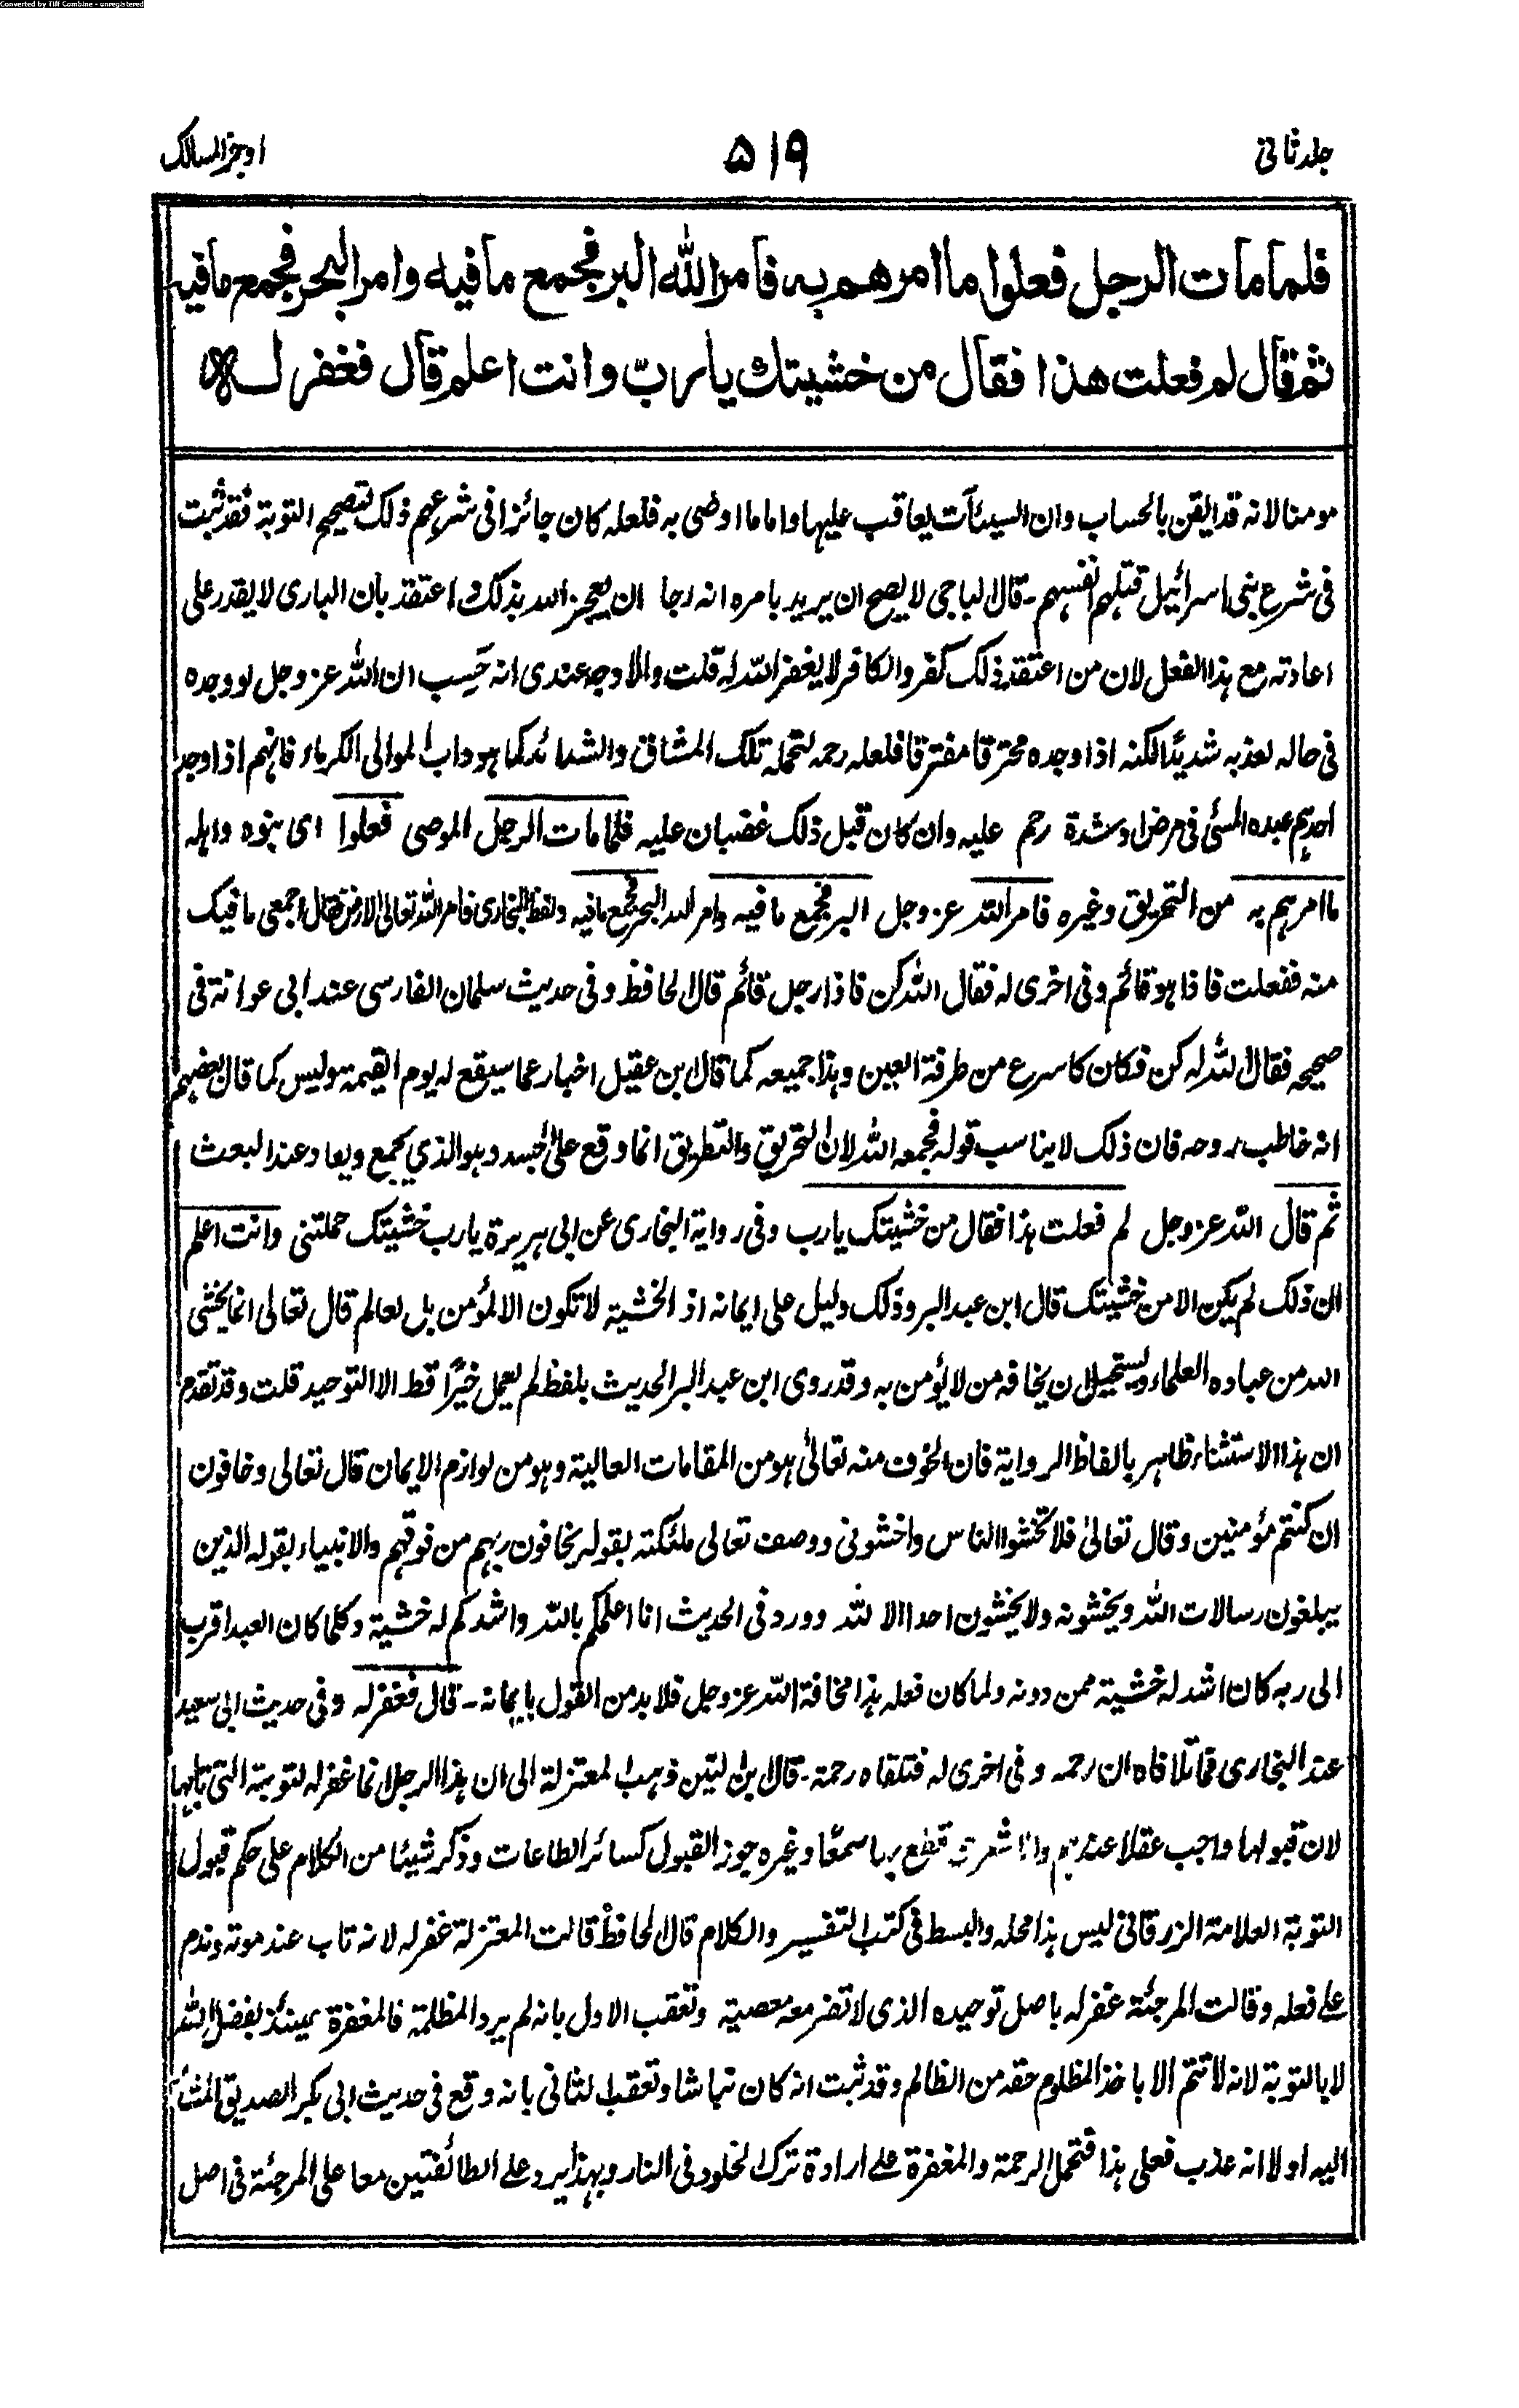 Converted by Tiff Combine - unregistered
جلد ثانی ۵۱۹ اوجز المسالک
فلما مات الرجل فعلوا ما امرهم به فامر الله البر فجمع ما فيه وامر البحر فجمع ما فيه
ثم قال لم فعلت هذا فقال من خشيتك يا رب وانت اعلم قال فغفر له
مومنا لانه قد ايقن بالحساب وان السيئات يعاقب عليها واما ما اوصى به فلعله كان جائزا فى شرعهم ذلك لتصحيح التوبة فقد ثبت
فى شرع بنى اسرائيل قتلهم انفسهم۔ قال الباجى لا يصح ان يريد بامره انه رجا ان يعجز الله بذلك واعتقد بان البارى لا يقدر على
اعادته مع هذا الفعل لان من اعتقد ذلك كفر والكافر لا يغفر الله له قلت والاوجه عندى انه حَسِب ان الله عز وجل لو وجده
فى حاله لعذبه شديدًا لكنه اذا وجده محترقا مفترقا فلعله رحمه لتحمله تلك المشاق والشدائد كما هو داب الموالى الكرماء فانهم اذا وجد
احدهم عبده المسئ فى مرض او شدة رحم عليه وان كان قبل ذلك غضبان عليه فلما مات الرجل الموصى فعلوا اى بنوه واهله
ما امرهم به من التحريق وغيره فامر الله عز وجل البر فجمع ما فيه وامر الله البحر فجمع ما فيه ولفظ البخارى فامر الله تعالى الارض فقال اجمعى ما فيك
منه ففعلت فاذا هو قائم وفى اخرى له فقال الله كن فاذا رجل قائم قال الحافظ وفى حديث سلمان الفارسى عند ابى عوانة فى
صحيحه فقال الله له كن فكان كاسرع من طرفة العين وهذا جميعه كما قال ابن عقيل اخبار عما سيقع له يوم القيمة وليس كما قال بعضهم
انه خاطب روحه فان ذلك لا يناسب قوله فجمعه الله لان التحريق والتطريق انما وقع على الجسد وهو الذي يجمع ويعاد عند البعث
ثم قال الله عز وجل لم فعلت هذا فقال من خشيتك يا رب وفى رواية البخارى عن ابى هريرة يا رب خشيتك حملتنى وانت اعلم
ان ذلك لم يكن الا من خشيتك قال ابن عبد البر وذلك دليل على ايمانه اذ الخشية لا تكون الا لمؤمن بل لعالم قال تعالى انما يخشى
الله من عباده العلماء ويستحيل ان يخافه من لا يؤمن به وقد روى ابن عبد البر الحديث بلفظ لم يعمل خيرًا قط الا التوحيد قلت وقد تقدم
ان هذا الاستثناء ظاهر بالفاظ الرواية فان الخوف منه تعالى هو من المقامات العالية وهو من لوازم الايمان قال تعالى وخافون
ان كنتم مؤمنين وقال تعالى فلا تخشوا الناس واخشونى ووصف تعالى ملئكته بقوله يخافون ربهم من فوقهم والانبياء بقوله الذين
يبلغون رسالات الله ويخشونه ولا يخشون احدا الا الله وورد فى الحديث انا اعلمكم بالله واشدكم له خشية وكلما كان العبد اقرب
الى ربه كان اشد له خشية ممن دونه ولما كان فعله هذا مخافة الله عز وجل فلا بد من القول بايمانه۔ قال فغفر له وفى حديث ابى سعيد
عند البخارى فما تلافاه ان رحمه وفى اخرى له فتلقاه رحمة۔ قال ابن التين ذهب المعتزلة الى ان هذا الرجل انما غفر له لتوبته التى تابها
لان قبولها واجب عقلا عندهم والاشعرى قطع بها سمعًا وغيره جوز القبول كسائر الطاعات وذكر شيئا من الكلام على حكم قبول
التوبة العلامة الزرقانى ليس هذا محله والبسط فى كتب التفسير والكلام قال الحافظ قالت المعتزلة غفر له لانه تاب عند موته وندم
على فعله وقالت المرجئة غفر له باصل توحيده الذى لا تضر معه معصية وتعقب الاول بانه لم يرد المظلمة فالمغفرة حينئذ بفضل الله
لا بالتوبة لانه لا تتم الا باخذ المظلوم حقه من الظالم وقد ثبت انه كان نباشا وتعقب الثانى بانه وقع فى حديث ابى بكر الصديق المشار
اليه اولا انه عذب فعلى هذا فتحمل الرحمة والمغفرة على ارادة ترك الخلود فى النار وبهذا يرد على الطائفتين معا على المرجئة فى اصل